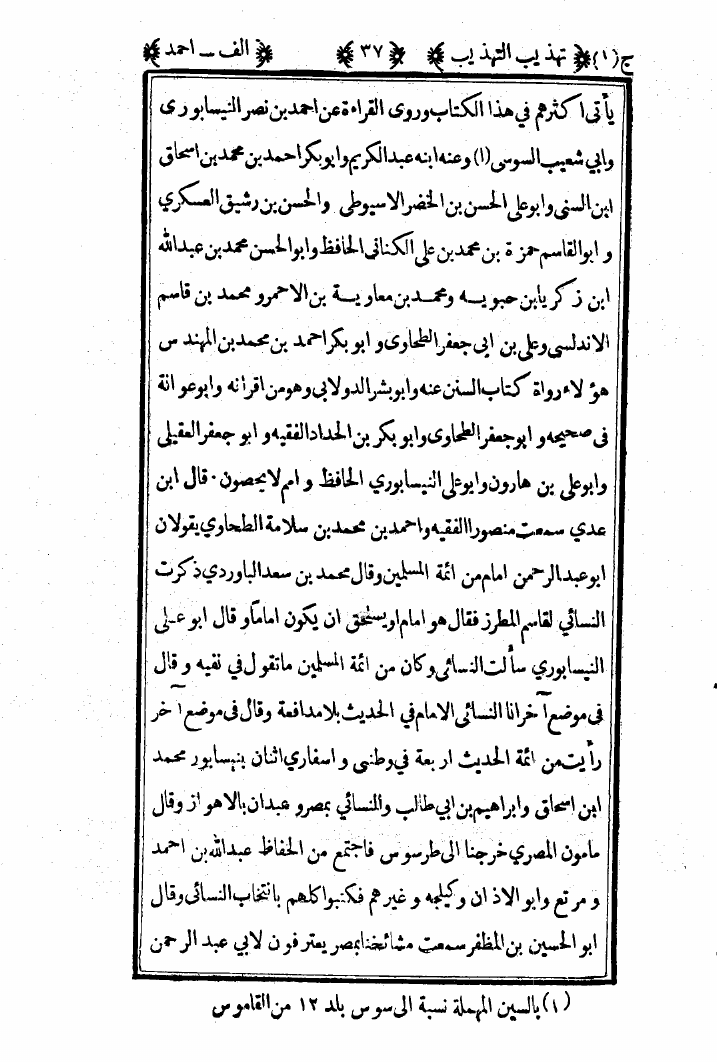 ج(١) تهذيب التهذيب ٣٧ الف ــ احمد
يأتى اكثرهم في هذا الكتاب وروى القراءة عن احمد بن نصر النيسابورى
وابي شعيب السوسى (١) وعنه ابنه عبدالكريم وابو بكر احمد بن محمد بن اسحاق
ابن السنى وابو على الحسن بن الخضر الاسيوطى والحسن بن رشيق العسكري
و ابو القاسم حمزة بن محمد بن على الكنانى الحافظ وابو الحسن محمد بن عبدالله
ابن زكريا بن حبويه ومحمد بن معاوية بن الاحمر و محمد بن قاسم
الاندلسى وعلى بن ابى جعفر الطحاوى و ابو بكر احمد بن محمد بن المهندس
هؤلاء رواة كتاب السنن عنه وابو بشر الدولابي وهو من اقرانه وابو عوانة
فى صحيحه و ابو جعفر الطحاوى وابو بكر بن الحداد الفقيه و ابو جعفر العقيلى
وابو على بن هارون وابو على النيسابوري الحافظ و امم لا يحصون ٠ قال ابن
عدي سمعت منصورا الفقيه واحمد بن محمد بن سلامة الطحاوي يقولان
ابو عبد الرحمن امام من ائمة المسلمين وقال محمد بن سعد الباوردي ذكرت
النسائي لقاسم المطرز فقال هو امام او يستحق ان يكون اماما و قال ابو على
النيسابوري سألت النسائى وكان من ائمة المسلمين ما تقول في نقيه و قال
فى موضع آخر انا النسائى الامام في الحديث بلا مدافعة وقال فى موضع آخر
رأيت من ائمة الحديث اربعة في وطنى و اسفاري اثنان بنيسابور محمد
ابن اسحاق وابراهيم بن ابي طالب والنسائي بمصر و عبدان بالاهواز وقال
مامون المصري خرجنا الى طرسوس فاجتمع من الحفاظ عبدالله بن احمد
و مربع وابو الاذان وكيلجه و غيرهم فكتبوا كلهم بانتخاب النسائى وقال
ابو الحسين بن المظفر سمعت مشائخنا بمصر يعترفون لابي عبد الرحمن
(١) بالسين المهملة نسبة الى سوس بلد ١٢ من القاموس